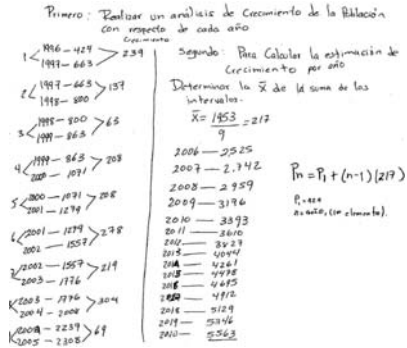 Primero: Realizar un análisis de Crecimiento de la Población
con respecto de cada año
Crecimiento
1 < 1996 - 424
1997 - 663 > 239
2 < 1997 - 663
1998 - 800 > 137
3 < 1998 - 800
1999 - 863 > 63
4 < 1999 - 863
2000 - 1071 > 208
5 < 2000 - 1071
2001 - 1279 > 208
6 < 2001 - 1279
2002 - 1557 > 278
7 < 2002 - 1557
2003 - 1776 > 219
< 2003 - 1776
2004 - 2008 > 304
< 2004 - 2239
2005 - 2308 > 69
Segundo: Para Calcular la estimación de
Crecimiento por año
Determinar la X̄ de la suma de los
intervalos.
X̄ = 1953 / 9 = 217
2006 — 2,525
2007 — 2.742
2008 — 2959
2009 — 3176
2010 — 3393
2011 — 3610
2012 — 3827
2013 — 4044
2014 — 4261
2015 — 4478
2016 — 4695
2017 — 4912
2018 — 5129
2019 — 5346
2020 — 5563
Pn = P1 + (n-1)(217)
P1 = 424
n = año, (un elemento).